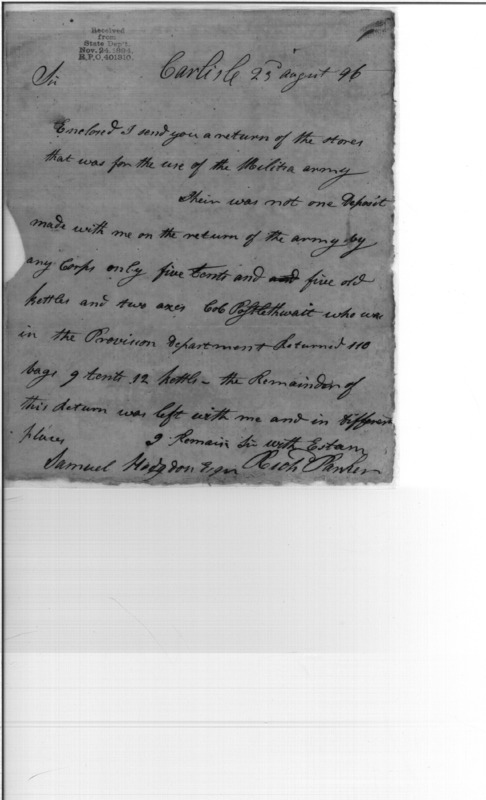 Received
from
State Dep't.
Nov. 24, 1894.
R.P.O. 401310.
Sir
Carlisle 25 august 96
Enclosed I send you a return of the stores
that was for the use of the Militia army
Their was not one Deposit
made with me on the return of the army by
any Corps only five tents and and five old
kettles and two axes Col Postlethwait who was
in the Provision department Returned 110
bags 9 tents 12 kettle - the Remainder of
this return was left with me and in different
places
I Remain Sir with Estam
Samuel Hodgdon Esqr Richd Parker